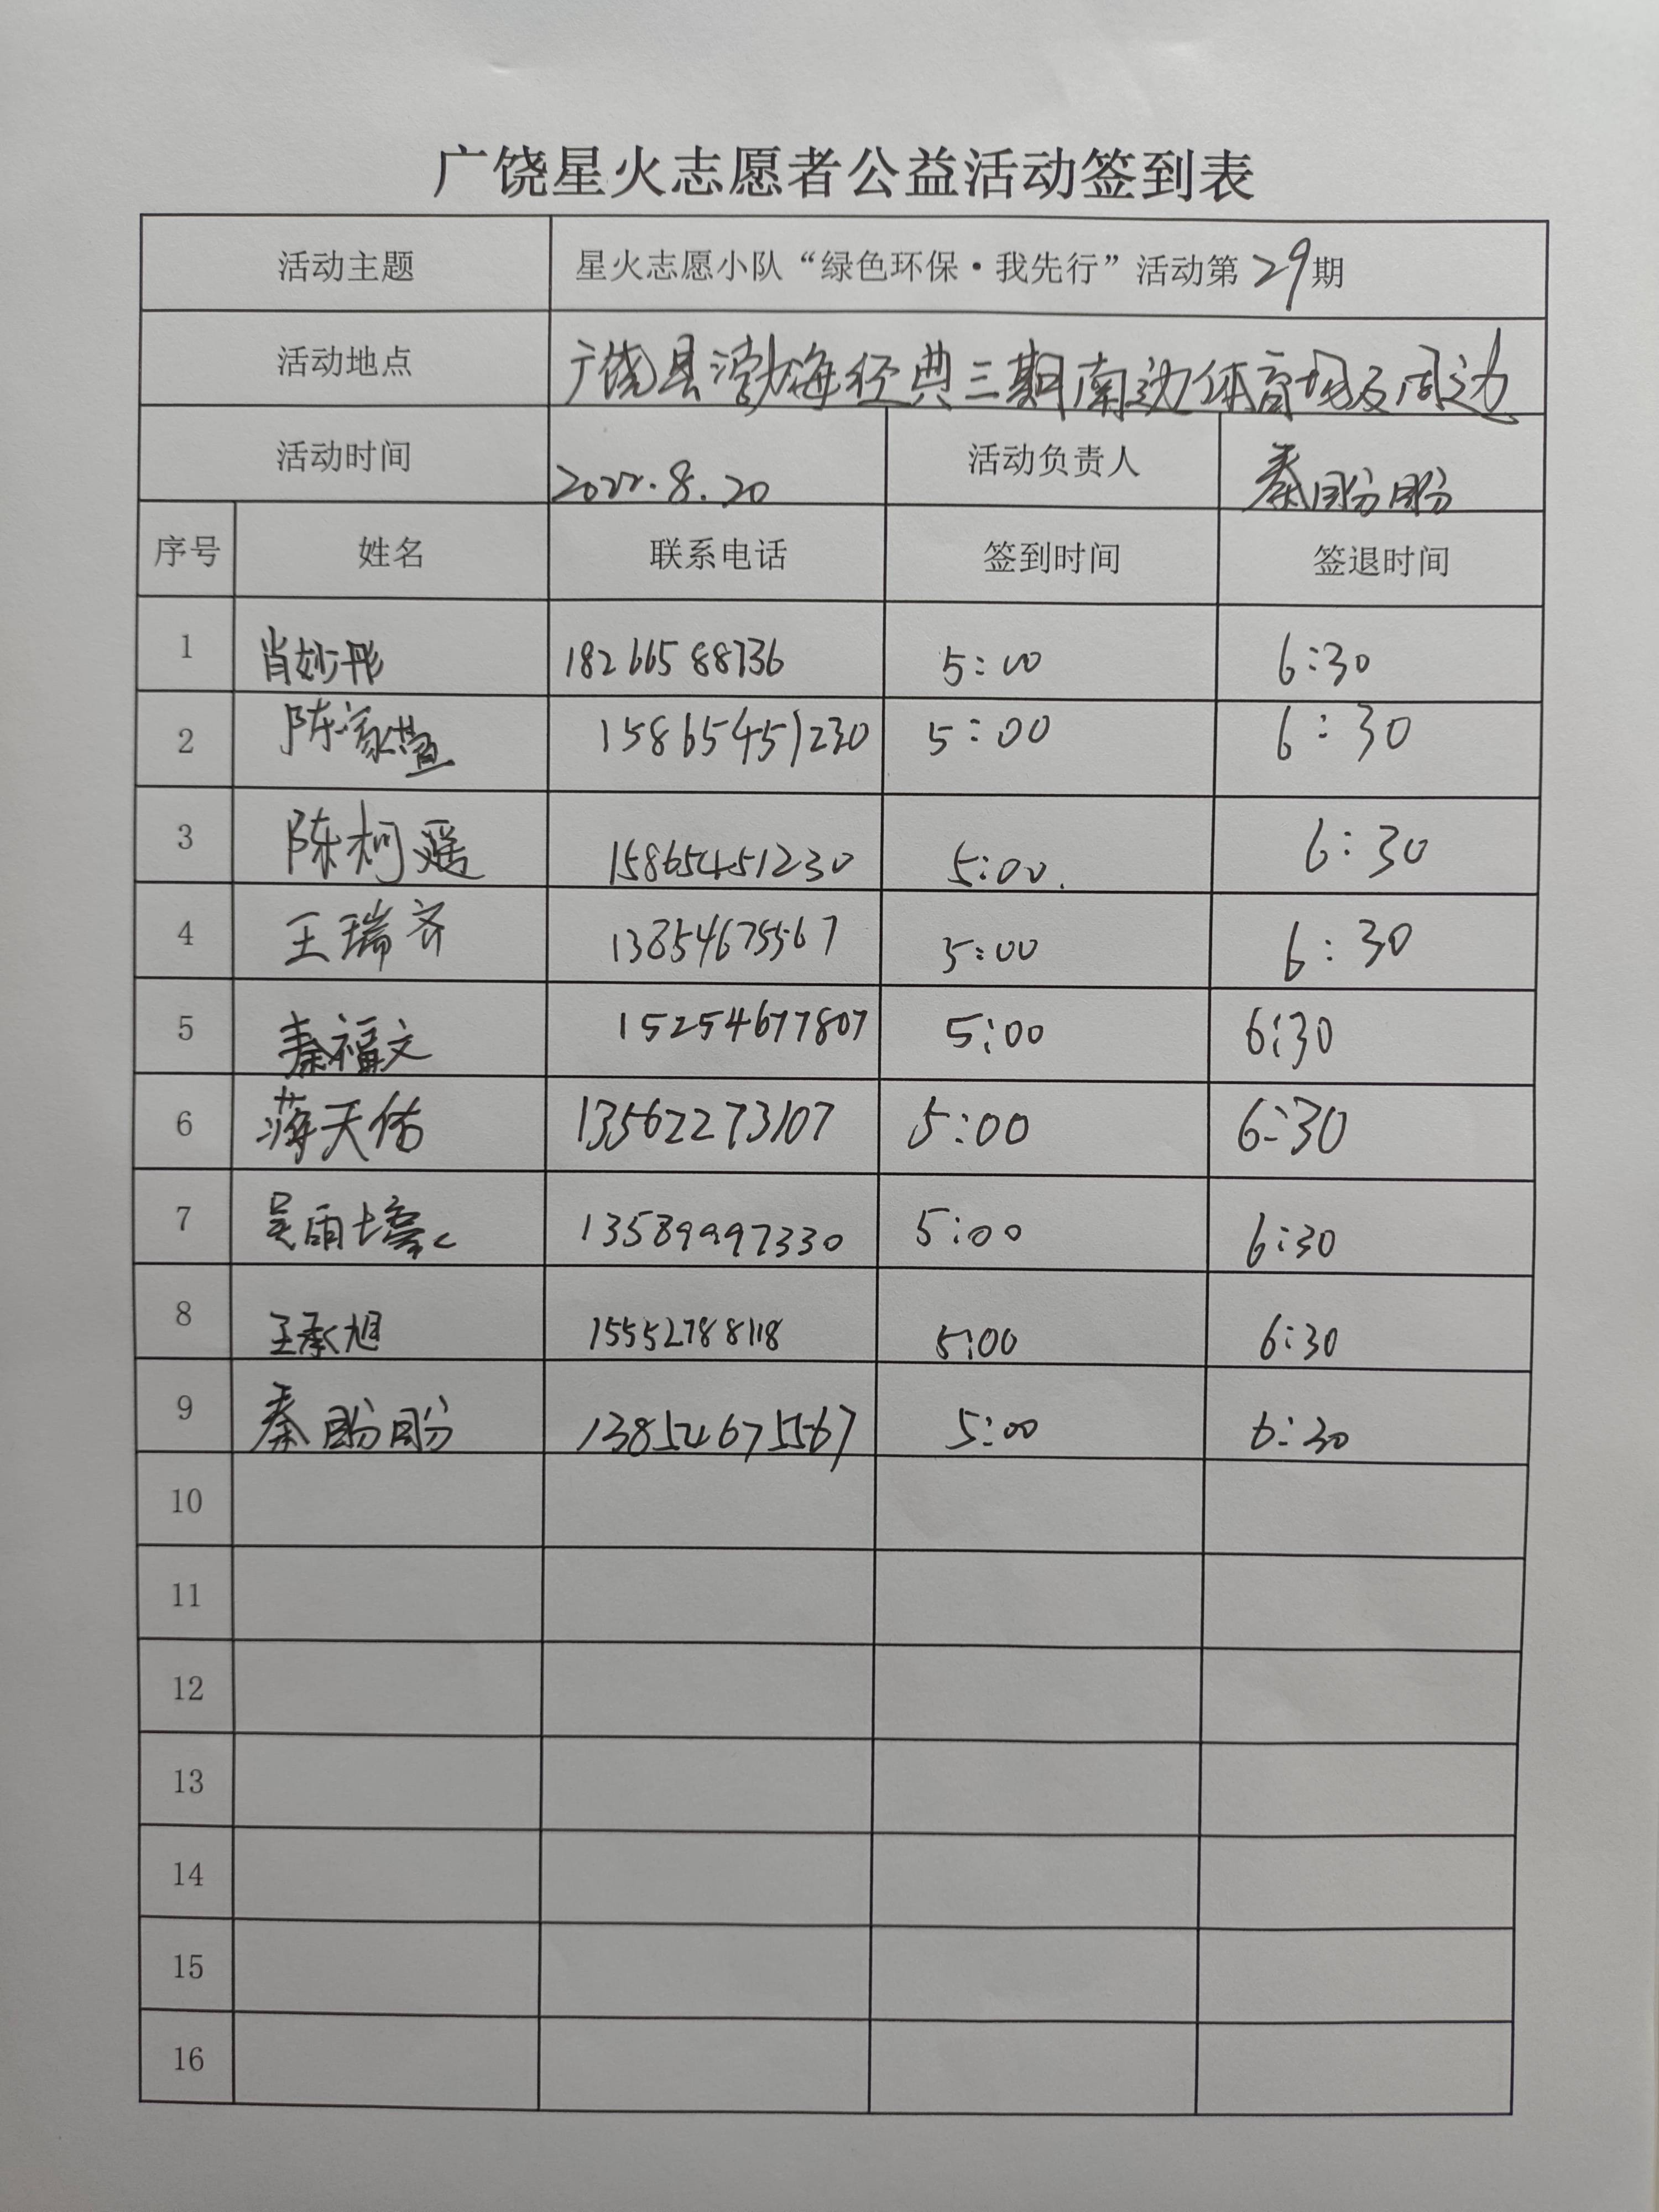 广饶星火志愿者公益活动签到表
活动主题 星火志愿小队“绿色环保·我先行”活动第29期
活动地点 广饶县渤海经典三期南边体育场及周边
活动时间 2022.8.20 活动负责人 秦盼盼
序号 姓名 联系电话 签到时间 签退时间
1 肖妙彤 18266588736 5:00 6:30
2 陈家萱 15865451230 5:00 6:30
3 陈柯瑶 15865451230 5:00. 6:30
4 王瑞齐 13854675567 5:00 6:30
5 秦福文 15254677807 5:00 6:30
6 蒋天佑 13562273107 5:00 6:30
7 吴雨 13589997330 5:00 6:30
8 王承旭 15552788118 5:00 6:30
9 秦盼盼 13854675567 5:00 6:30
10
11
12
13
14
15
16